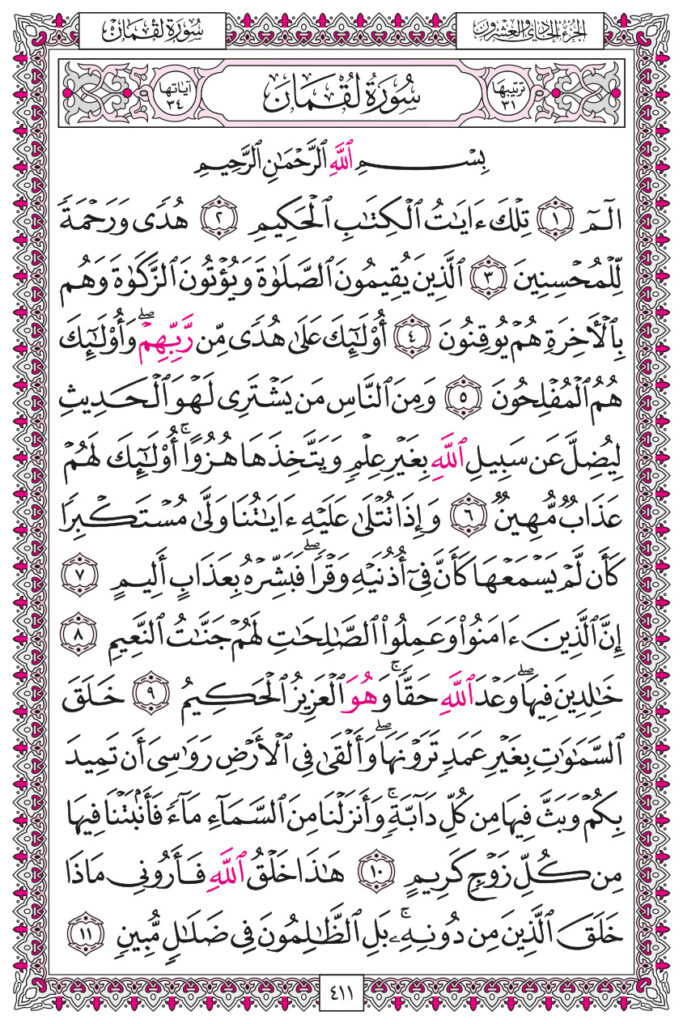 الجزء الحادي والعشرون
سورة لقمان
ترتيبها ٣١
سُورَةُ لُقْمَان
آياتها ٣٤
بِسْمِ ٱللَّهِ ٱلرَّحْمَٰنِ ٱلرَّحِيمِ
الٓمٓ ١ تِلْكَ ءَايَٰتُ ٱلْكِتَٰبِ ٱلْحَكِيمِ ٢ هُدًى وَرَحْمَةً
لِّلْمُحْسِنِينَ ٣ ٱلَّذِينَ يُقِيمُونَ ٱلصَّلَوٰةَ وَيُؤْتُونَ ٱلزَّكَوٰةَ وَهُم
بِٱلْأَخِرَةِ هُمْ يُوقِنُونَ ٤ أُوْلَٰٓئِكَ عَلَىٰ هُدًى مِّن رَّبِّهِمْۖ وَأُوْلَٰٓئِكَ
هُمُ ٱلْمُفْلِحُونَ ٥ وَمِنَ ٱلنَّاسِ مَن يَشْتَرِى لَهْوَ ٱلْحَدِيثِ
لِيُضِلَّ عَن سَبِيلِ ٱللَّهِ بِغَيْرِ عِلْمٍ وَيَتَّخِذَهَا هُزُوًاۚ أُوْلَٰٓئِكَ لَهُمْ
عَذَابٌ مُّهِينٌ ٦ وَإِذَا تُتْلَىٰ عَلَيْهِ ءَايَٰتُنَا وَلَّىٰ مُسْتَكْبِرًا
كَأَن لَّمْ يَسْمَعْهَا كَأَنَّ فِىٓ أُذُنَيْهِ وَقْرًاۖ فَبَشِّرْهُ بِعَذَابٍ أَلِيمٍ ٧
إِنَّ ٱلَّذِينَ ءَامَنُوا۟ وَعَمِلُوا۟ ٱلصَّٰلِحَٰتِ لَهُمْ جَنَّٰتُ ٱلنَّعِيمِ ٨
خَٰلِدِينَ فِيهَاۖ وَعْدَ ٱللَّهِ حَقًّاۚ وَهُوَ ٱلْعَزِيزُ ٱلْحَكِيمُ ٩ خَلَقَ
ٱلسَّمَٰوَٰتِ بِغَيْرِ عَمَدٍ تَرَوْنَهَاۖ وَأَلْقَىٰ فِى ٱلْأَرْضِ رَوَٰسِىَ أَن تَمِيدَ
بِكُمْ وَبَثَّ فِيهَا مِن كُلِّ دَآبَّةٍۚ وَأَنزَلْنَا مِنَ ٱلسَّمَآءِ مَآءً فَأَنۢبَتْنَا فِيهَا
مِن كُلِّ زَوْجٍ كَرِيمٍ ١٠ هَٰذَا خَلْقُ ٱللَّهِ فَأَرُونِى مَاذَا
خَلَقَ ٱلَّذِينَ مِن دُونِهِۦۚ بَلِ ٱلظَّٰلِمُونَ فِى ضَلَٰلٍ مُّبِينٍ ١١
٤١١